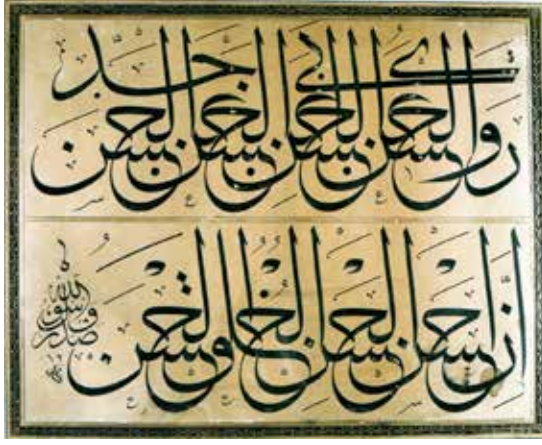 روى الحسن عن الحسن عن ابى الحسن عن جد الحسن
ان احسن الحسن الخلق الحسن
صدق رسول الله